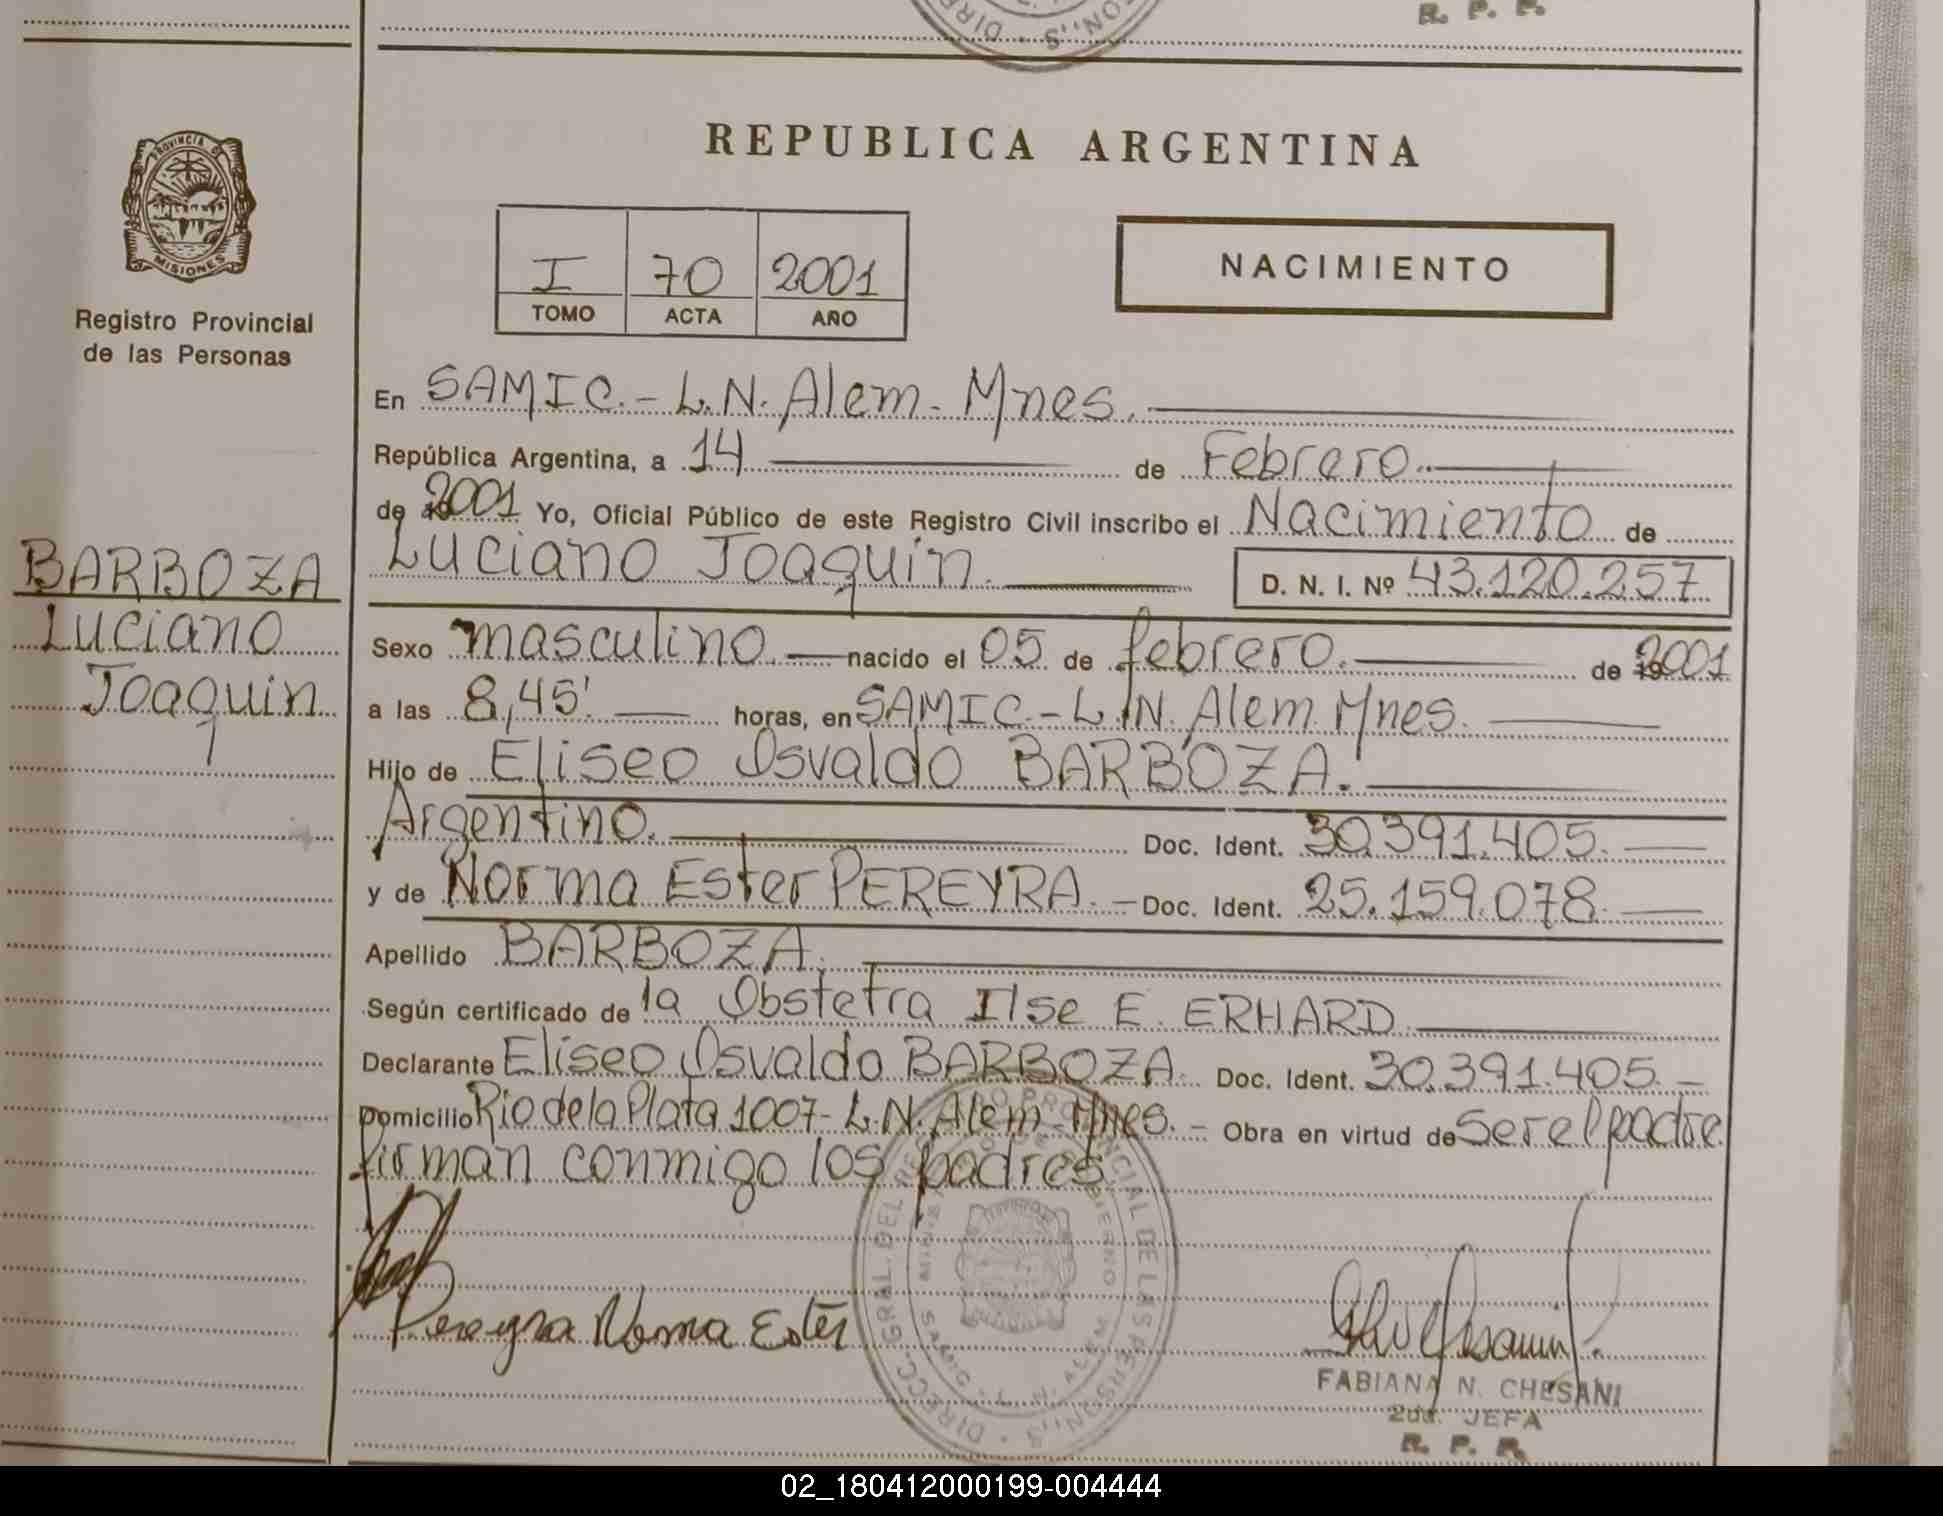 R. P. F.
REPUBLICA ARGENTINA
PROVINCIA D
MISIONES
Registro Provincial
de las Personas
I 70 2001
TOMO ACTA AÑO
NACIMIENTO
En SAMIC.- L.N. Alem - Mnes.
República Argentina, a 14 de Febrero.
de 2001 Yo, Oficial Público de este Registro Civil inscribo el Nacimiento de
Luciano Joaquin. D. N. I. Nº 43.120.257
BARBOZA
Luciano
Joaquin
Sexo masculino. nacido el 05 de febrero. de 2001
a las 8,45'. horas, en SAMIC.- L.N. Alem Mnes.
Hijo de Eliseo Osvaldo BARBOZA.
Argentino. Doc. Ident. 30.391.405.
y de Norma Ester PEREYRA. - Doc. Ident. 25.159.078.
Apellido BARBOZA.
Según certificado de la Obstetra Ilse E. ERHARD
Declarante Eliseo Osvaldo BARBOZA. Doc. Ident. 30.391.405.-
Domicilio Rio de la Plata 1007- L.N. Alem - Mnes. - Obra en virtud de ser el padre
firman conmigo los padres
Pereyra Norma Ester
FABIANA N. CHESANI
2da. JEFA
R. P. P.
02_180412000199-004444